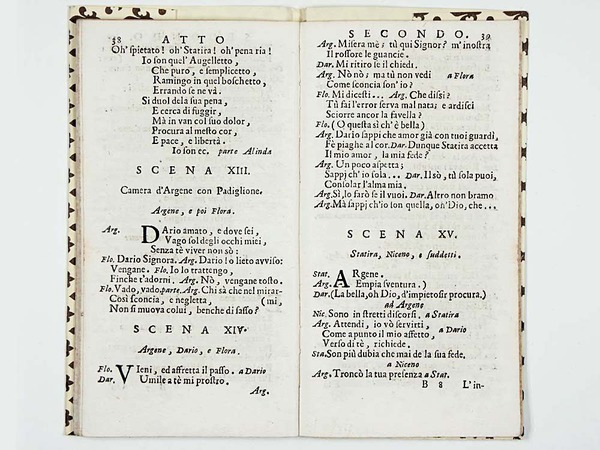 38 ATTO
Oh' spietato! oh' Statira! oh' pena ria!
Io son quel' Augelletto,
Che puro, e semplicetto,
Ramingo in quel boschetto,
Errando se ne và.
Si duol dela sua pena,
E cerca di fuggir,
Mà in van col suo dolor,
Procura al mesto cor,
E pace, e libertà.
Io son ec. parte Alinda
SCENA XIII.
Camera d'Argene con Padiglione.
Argene, e poi Flora.
Arg. DArio amato, e dove sei,
Vago sol degli occhi miei,
Senza tè viver non sò:
Flo. Dario Signora. Arg. Dario! o lieto avviso:
Vengane. Flo. Io lo trattengo,
Finche t'adorni. Arg. Nò, vengane tosto.
Flo. Vado, vado. parte. Arg. Chi sà che nel mirar-
Così sconcia, e negletta, (mi,
Non si muova colui, benche di sasso?
SCENA XIV.
Argene, Dario, e Flora.
Flo. VIeni, ed affretta il passo. a Dario
Dar. Umile a tè mi prostro.
Arg.
SECONDO. 39
Arg. Misera mè; tù qui Signor? m'inostra
Il rossore le guancie.
Dar. Mi ritiro se il chiedi.
Arg. Nò nò; ma tù non vedi a Flora
Come sconcia son' io?
Flo. Mi dicesti... Arg. Che dissi?
Tù fai l'error serva mal nata; e ardisci
Sciorre ancor la favella?
Flo. (O questa sì ch'è bella)
Arg. Dario sappi che amor già con tuoi guardi,
Fè piaghe al cor. Dar. Dunque Statira accetta
Il mio amor, la mia fede?
Arg. Un poco aspetta;
Sappj ch'io sola... Dar. Il sò, tù sola puoi,
Consolar l'alma mia.
Arg. Sì, lo farò se il vuoi. Dar. Altro non bramo
Arg. Mà sappj ch'io son quella, oh' Dio, che...
SCENA XV.
Statira, Niceno, e suddetti.
Stat. ARgene.
Arg. Empia sventura.)
Dar. (La bella, oh Dio, d'impietosir procura.)
ad Argene
Nic. Sono in stretti discorsi, a Statira
Arg. Attendi, io vò servirti, a Dario
Come a punto il mio affetto,
Verso di tè, richiede.
Sta. Son più dubia che mai de la sua fede.
a Niceno
Arg. Troncò la tua presenza a Stat.
B 8 L'in-